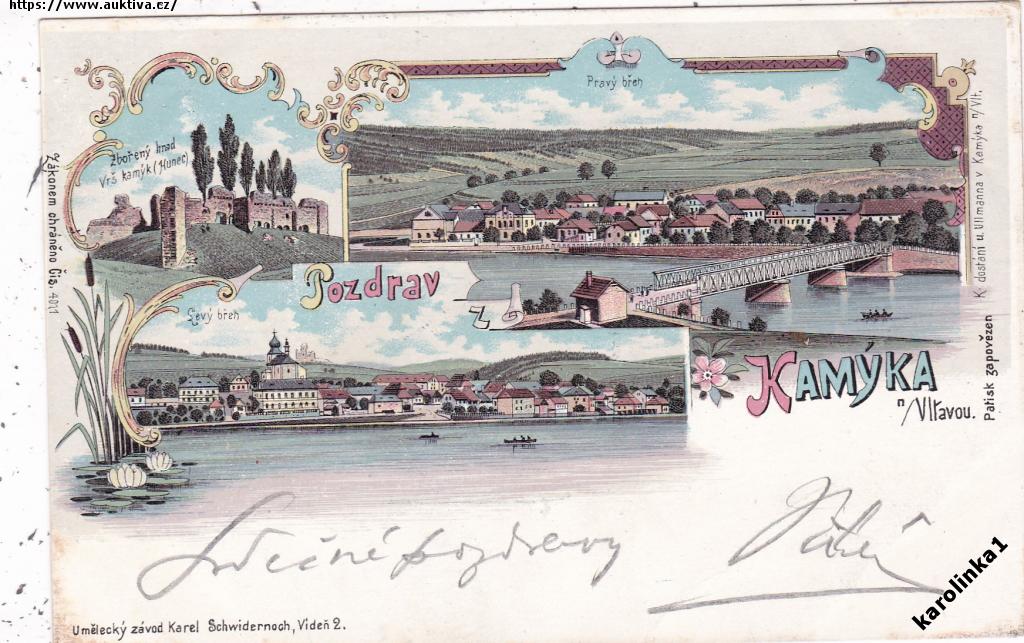 https://www.auktiva.cz/
Zbořený hrad
Vrš kamýk (Hunec)
Pravý břeh
Zákonem ohráněno Čís. 4011
K dostání u Ullmanna v Kamýka n/Vlt.
Patisk zapovězen
Pozdrav
Z
Levý břeh
KAMÝKA
n/Vltavou.
Srdečné pozdravy
karolinka1
Umělecký závod Karel Schwidernoch, Videň 2.